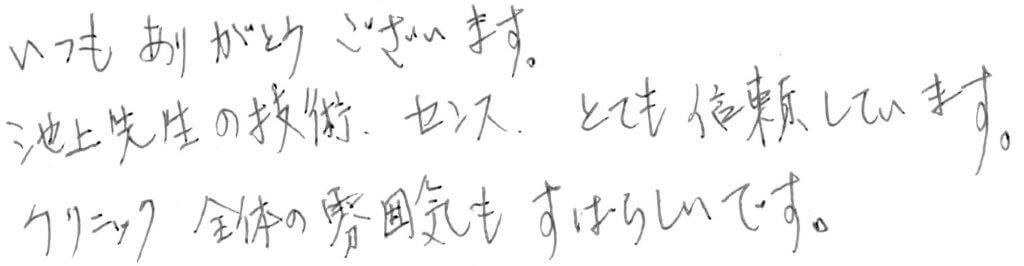 いつもありがとうございます。
池上先生の技術、センス、とても信頼しています。
クリニック全体の雰囲気もすばらしいです。